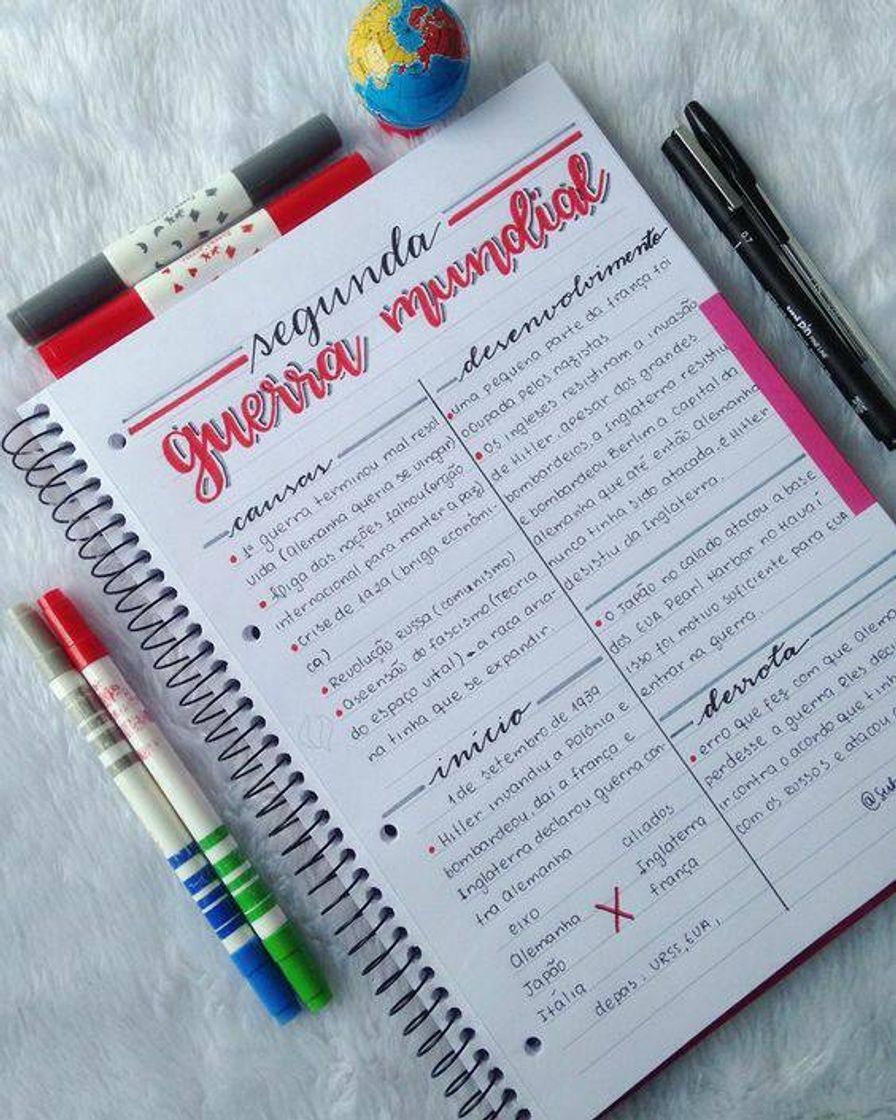 segunda
guerra mundial
causas
• 1ª guerra terminou mal resol
vida (Alemanha queria se vingar)
• Aliga das nações falhou (órgão
internacional para manter a paz)
• Crise de 1929 (briga econômi-
ca)
• Revolução Russa (comunismo)
• Ascensão do fascismo (Teoria
do espaço vital) → a raça aria-
na tinha que se expandir.
início
1 de setembro de 1939
• Hitler invandiu a Polônia e
bombardeou, daí a frança e
Inglaterra declarou guerra con-
tra Alemanha
eixo aliados
Alemanha X Inglaterra
Japão frança
Itália depois. URSS, EUA,
desenvolvimento
• uma pequena parte da frança foi
ocupada pelos nazistas
• Os ingleses resistiram a invasão
de Hitler, apesar dos grandes
bombardeios, a Inglaterra resistiu
e bombardeou Berlim a capital da
Alemanha que até então Alemanha
nunca tinha sido atacada. e Hitler
desistiu da Inglaterra.
• O Japão no calado atacou a base
dos EUA Pearl Harbor no Havaí
isso foi motivo suficiente para EUA
entrar na guerra.
derrota
• erro que fez com que Alem
perdesse a guerra Eles deci
ir contra o acordo que tin
com os Russos e atacou
0.7
uni pin
FINE LINE